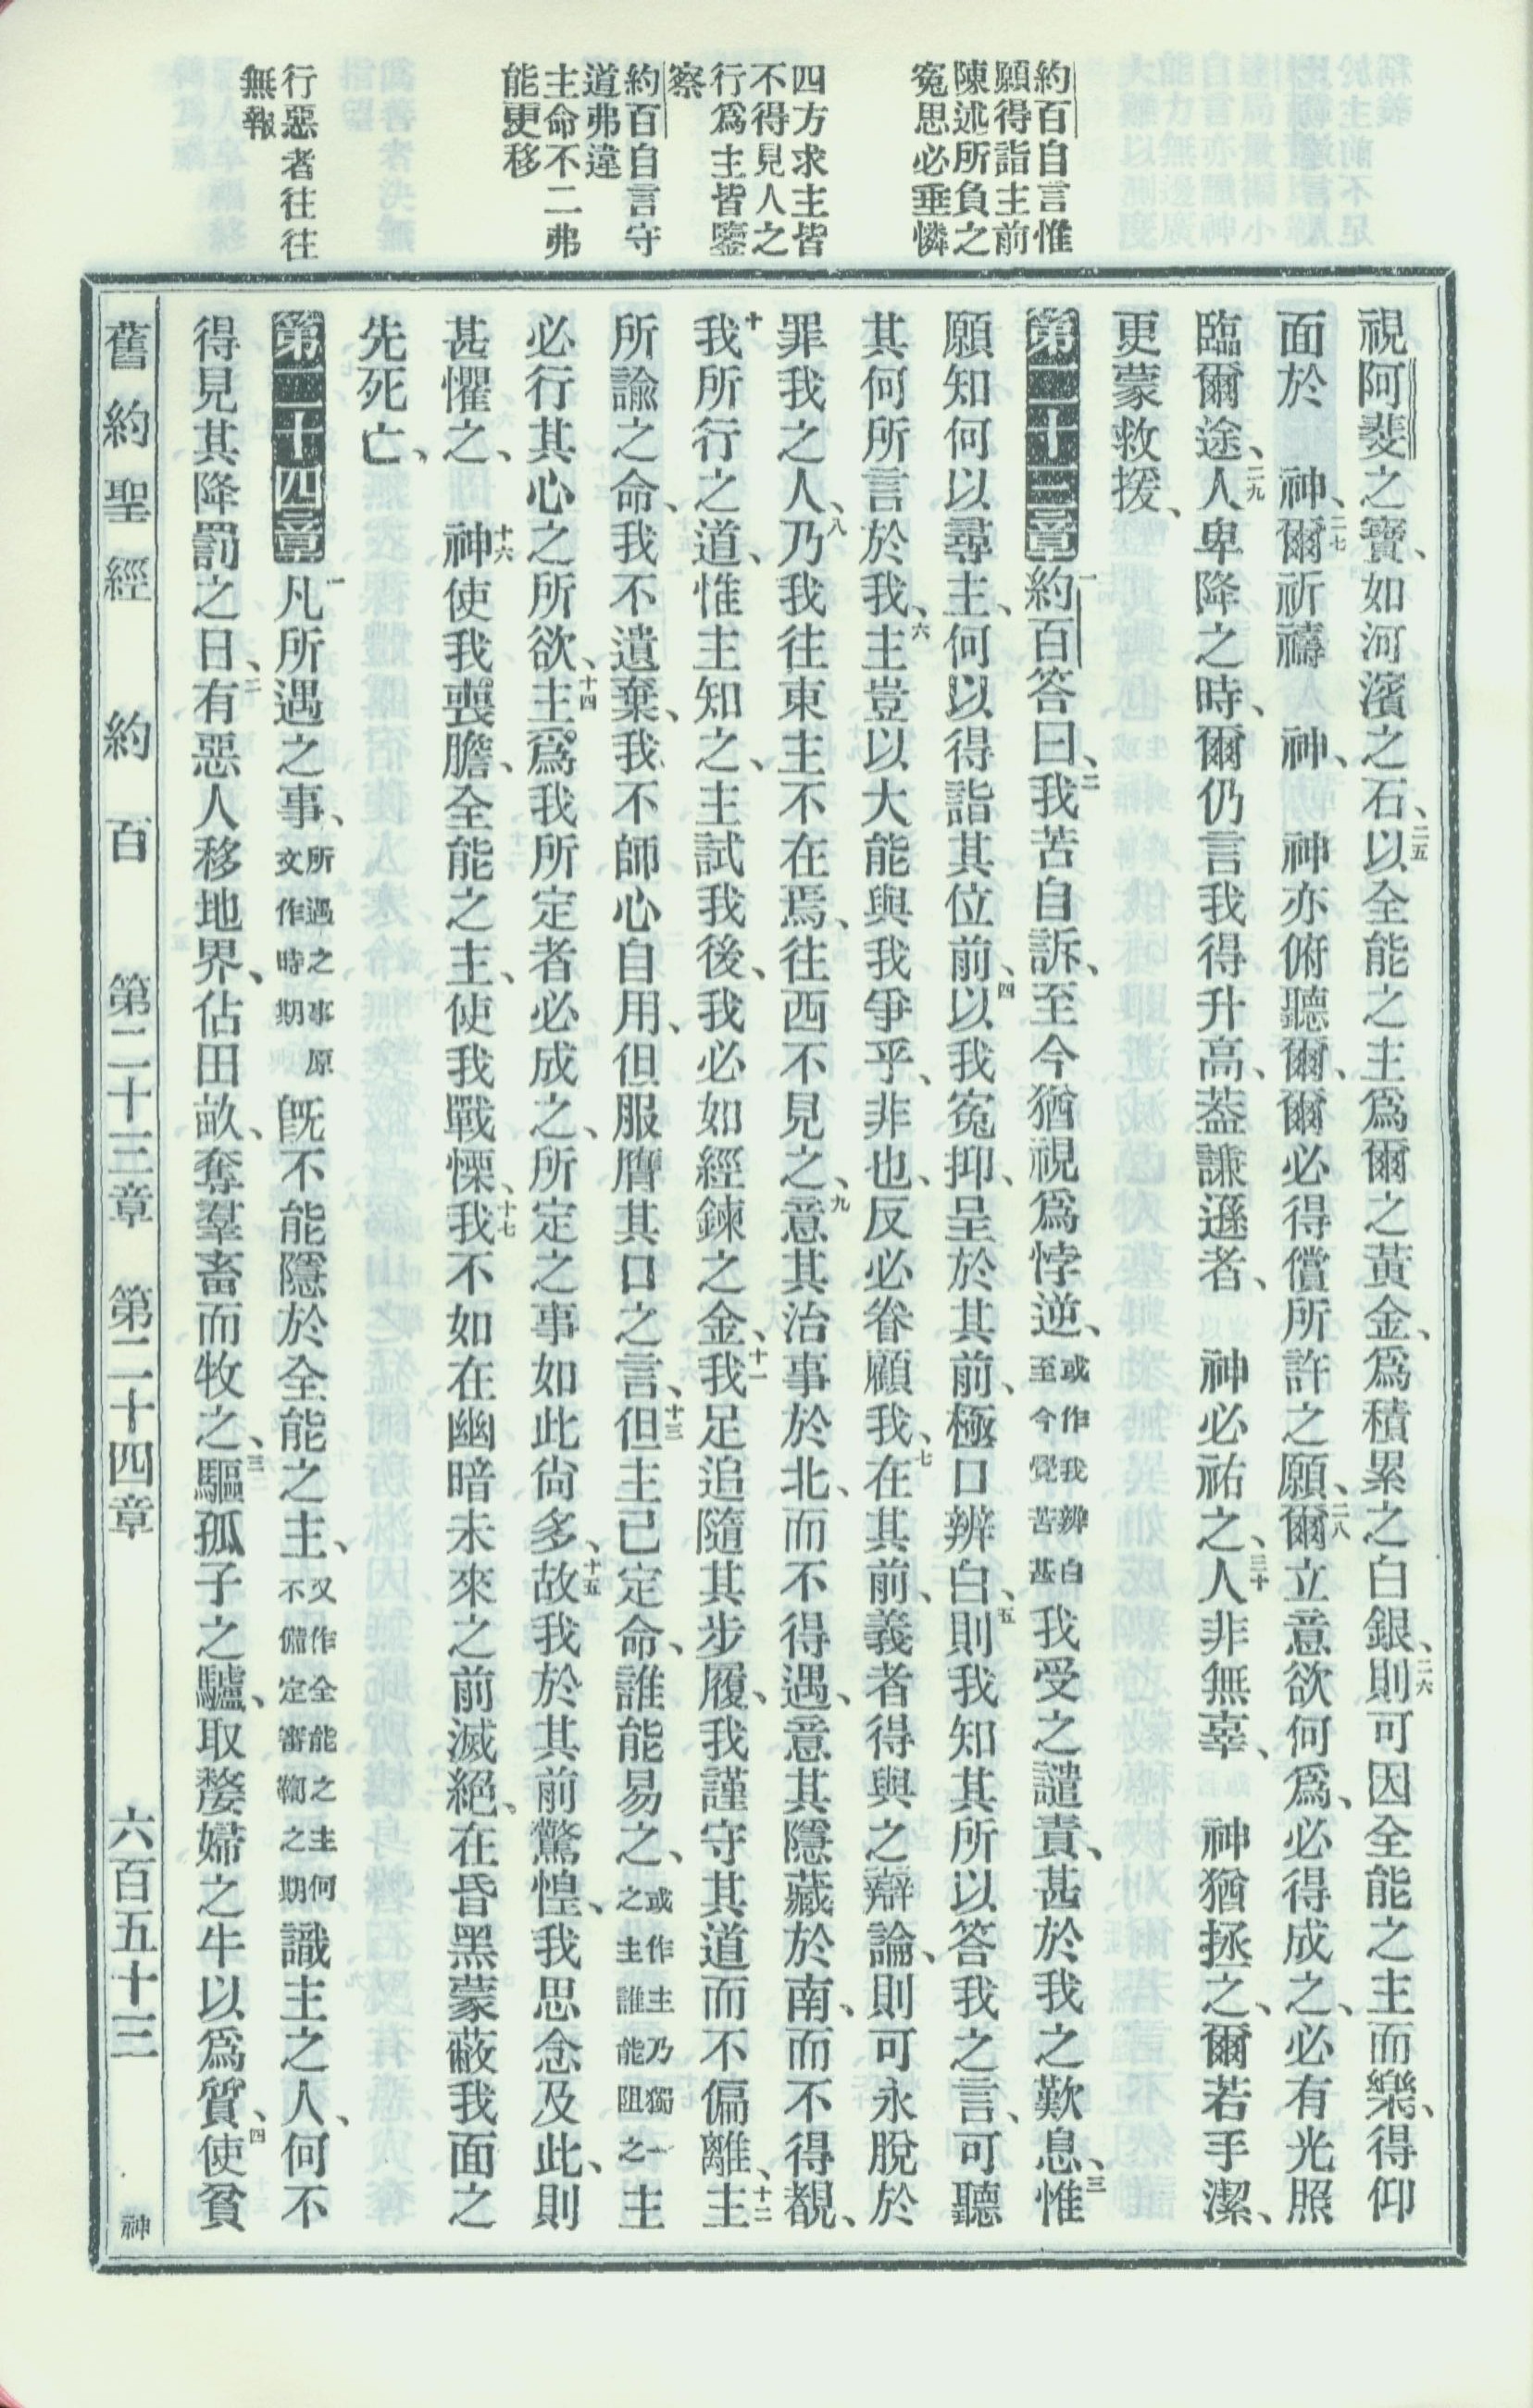 約百自言惟
願得詣主前
陳述所負之
寃思必垂憐
四方求主皆
不得見人之
行爲主皆鑒
察
約百自言守
道弗違
主命不二弗
能更移
行惡者往往
無報
視阿斐之寶、如河濱之石、二五以全能之主爲爾之黃金、爲積累之白銀、二六則可因全能之主而樂、得仰
面於 神、二七爾祈禱 神、 神亦俯聽爾、爾必得償所許之願、二八爾立意欲何爲、必得成之、必有光照
臨爾途、二九人卑降之時、爾仍言我得升高、蓋謙遜者、 神必祐之、三十人非無辜、 神猶拯之、爾若手潔、
更蒙救援、
第二十三章 一約百答曰、二我苦自訴、至今猶視爲悖逆、或作我辨白至今覺苦甚我受之譴責、甚於我之歎息、三惟
願知何以尋主、何以得詣其位前、四以我寃抑、呈於其前、極口辨白、五則我知其所以答我之言、可聽
其何所言於我、六主豈以大能與我爭乎、非也、反必眷顧我、七在其前、義者得與之辯論、則可永脫於
罪我之人、八乃我往東主不在焉、往西不見之、九意其治事於北、而不得遇、意其隱藏於南、而不得覩、
十我所行之道、惟主知之、主試我後、我必如經鍊之金、十一我足追隨其步履、我謹守其道而不偏離、十二主
所諭之命、我不遺棄、我不師心自用、但服膺其口之言、十三但主已定命、誰能易之、或作主乃獨一之主誰能阻之主
必行其心之所欲、十四主爲我所定者必成之、所定之事如此尙多、十五故我於其前驚惶、我思念及此、則
甚懼之、十六 神使我喪膽、全能之主、使我戰慄、十七我不如在幽暗未來之前滅絕、在昏黑蒙蔽我面之
先死亡、
第二十四章 一凡所遇之事、所遇之事原文作時期旣不能隱於全能之主、又作全能之主何不備定審鞫之期識主之人、何不
得見其降罰之日、二有惡人移地界、佔田畝、奪羣畜而牧之、三驅孤子之驢、取嫠婦之牛以爲質、四使貧
舊約聖經 約百 第二十三章 第二十四章 六百五十三 神